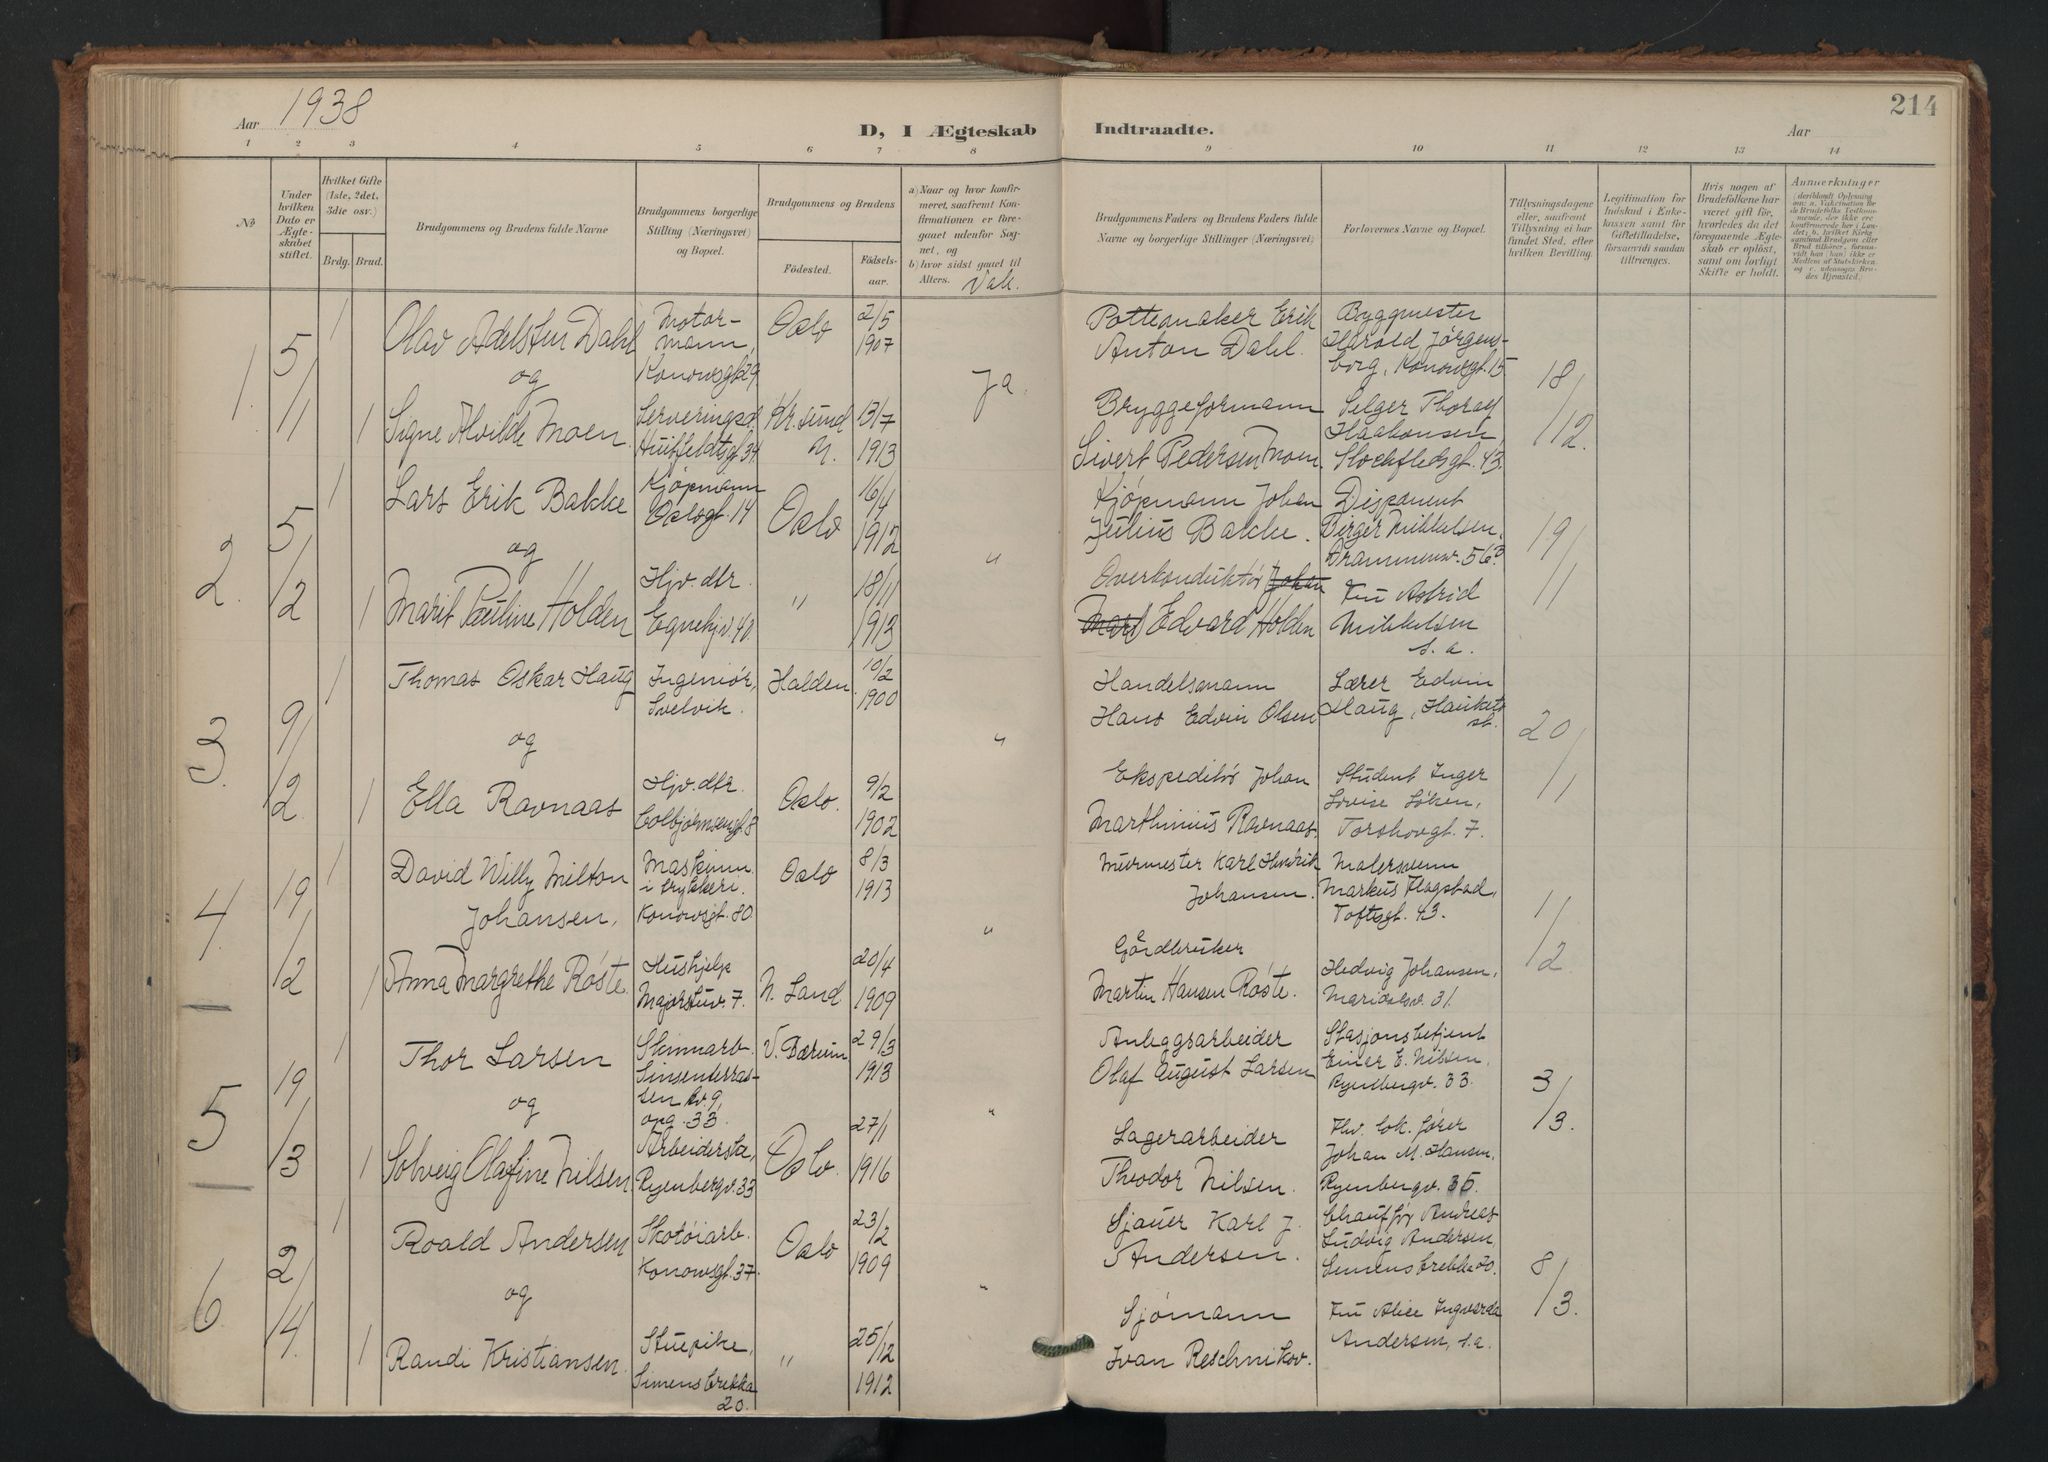 Aar 1938
D, I Ægteskab Indtraadte.
Aar
214
1 2 3 4 5 6 7 8 9 10 11 12 13 14
No
Under hvilken Dato er Ægteskabet stiftet.
Hvilket Gifte (1ste, 2det, 3die osv.)
Brdg. Brud.
Brudgommens og Brudens fulde Navne
Brudgommens borgerlige Stilling (Næringsvei) og Bopæl.
Brudgommens og Brudens
Födested.
Födsels-aar.
a) Naar og hvor konfirmeret, saafremt Konfirmationen er foregaaet udenfor Sognet, og
b) hvor sidst gaaet til Alters.
Vak.
Brudgommens Faders og Brudens Faders fulde Navne og borgerlige Stillinger (Næringsvei)
Forlovernes Navne og Bopæl.
Tillysningsdagene eller, saafremt Tillysning ei har fundet Sted, efter hvilken Bevilling.
Legitimation for Indskud i Enkekassen samt for Giftetilladelse, forsaavidt saadan tiltrænges.
Hvis nogen af Brudefolkene har været gift för, hvorledes da det foregaaende Ægteskab er oplöst, samt om lovligt Skifte er holdt.
Anmerkninger
1.
5/1
1
Olav Adelsten Dahl
og
1
Signe Alvilde Moen.
Motor-
mann,
Konowsgt. 29
Serveringsd.
Huitfeldtsgt. 34.
Oslo
Kr. sund
N.
2/5
1907
13/7
1913
Ja.
Pottemaker Erik
Anton Dahl.
Bryggeformann
Sivert Pedersen Moen.
Byggmester
Harald Jörgens-
borg, Konowsgt. 15.
Selger Thoralf
Haakonsen,
Stockfledsgt. 43.
18/12.
2.
5/2
1
Lars Erik Bakke
og
1
Marit Pauline Holden
Kjöpmann
Oslogt. 14
Hjv. dtr.
Egnehjv. 40
Oslo
"
16/4
1912
18/11
1913
"
Kjöpmann Johan
Julius Bakke.
Overkonduktör Johan
Edvard Holden
Disponent
Birger Mikkelsen,
Drammensv. 56
Fru Astrid
Mikkelsen
s. a.
19/1
3.
9/2.
1
Thomas Oskar Haug
og
1
Ella Ravnaas
Ingeniör,
Svelvik.
Hjv. dtr.
Colbjörnsensgt. 8
Halden.
Oslo.
10/2
1900
9/2
1902
"
Handelsmann
Hans Edvin Olsen
Ekspeditör Johan
Marthinius Ravnaas.
Lærer Edvin
Haug, Hauketo
st.
Student Inger
Lovise Löken,
Torshovgt. 7.
20/1
4.
19/2
1
David Willy Milton
Johansen,
1
Anna Margrethe Röste.
Maskinm.
i trykkeri.
Konowsgt. 80
Hushjelp
Majorstuv. 7.
Oslo
N. Land
8/3
1913
20/4
1909
"
Murmester Karl Hendrik
Johansen.
Gårdbruker
Marten Hansen Röste.
Malersvenn
Markus Flagstad,
Toftesgt. 43.
Hedvig Johansen,
Maridalsv. 31.
1/2.
5
19/3
1
Thor Larsen
og
1
Solveig Olafine Nilsen
Skinnarb.
Sinsenterras-
sen kv. 9,
opg. 33.
Arbeiderske,
Ryenbergv. 33
V. Bærum
Oslo.
29/3
1913
27/1
1916
"
Anleggsarbeider
Olaf August Larsen
Lagerarbeider
Theodor Nilsen.
Stasjonsbetjent
Einer E. Nilsen,
Ryenbergv. 33.
Fhv. lok. förer
Johan M. Hansen,
Ryenbergv. 35.
3/3.
6.
2/4.
1
Roald Andersen
og
1
Randi Kristiansen.
Skotöiarb.
Konowsgt. 37.
Stuepike,
Simensbrekka
20.
Oslo
"
23/2
1909
25/12
1912
"
Sjauer Karl J.
Andersen.
Sjömann
Ivan Reschnikov.
Chaufför Andreas
Ludvig Andersen,
Simensbrekka 20.
Fru Alice Ingvarda
Andersen, s. a.
8/3.